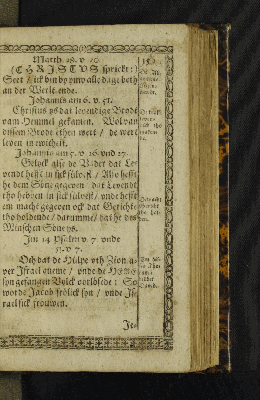 Matth. 28. v. 20.
(CHRISTVS sprickt:)
Seet / ick bin by yuw alle dage beth
an der Werlt ende.
Johannis am 6. v. 51.
Christus ys dat leuendige Brodt
vam Hemmel gekamen. Wol van
dissem Brode ethen wert / de wert
leuen in ewicheit.
Johannis am 5. v. 26. vnd 27.
Gelyck alse de Vader dat Le-
uendt hefft in sick süluest / Also hefft
he dem Söne gegeuen dat Leuendt
tho hebben in sick süluest / vnde hefft
em macht gegeuen ock dat Gerichte
tho holdende / darumme / dat he des
Minschen Söne ys.
Im 14 Psalm v. 7 vnde
53. v. 7.
Och dat de Hülpe vth Zion a-
uer Israel queme / vnde de HERE
syn gefangen Volck vorlösede : So
worde Jacob frölick syn / vnde Js-
rael sick frouwen.